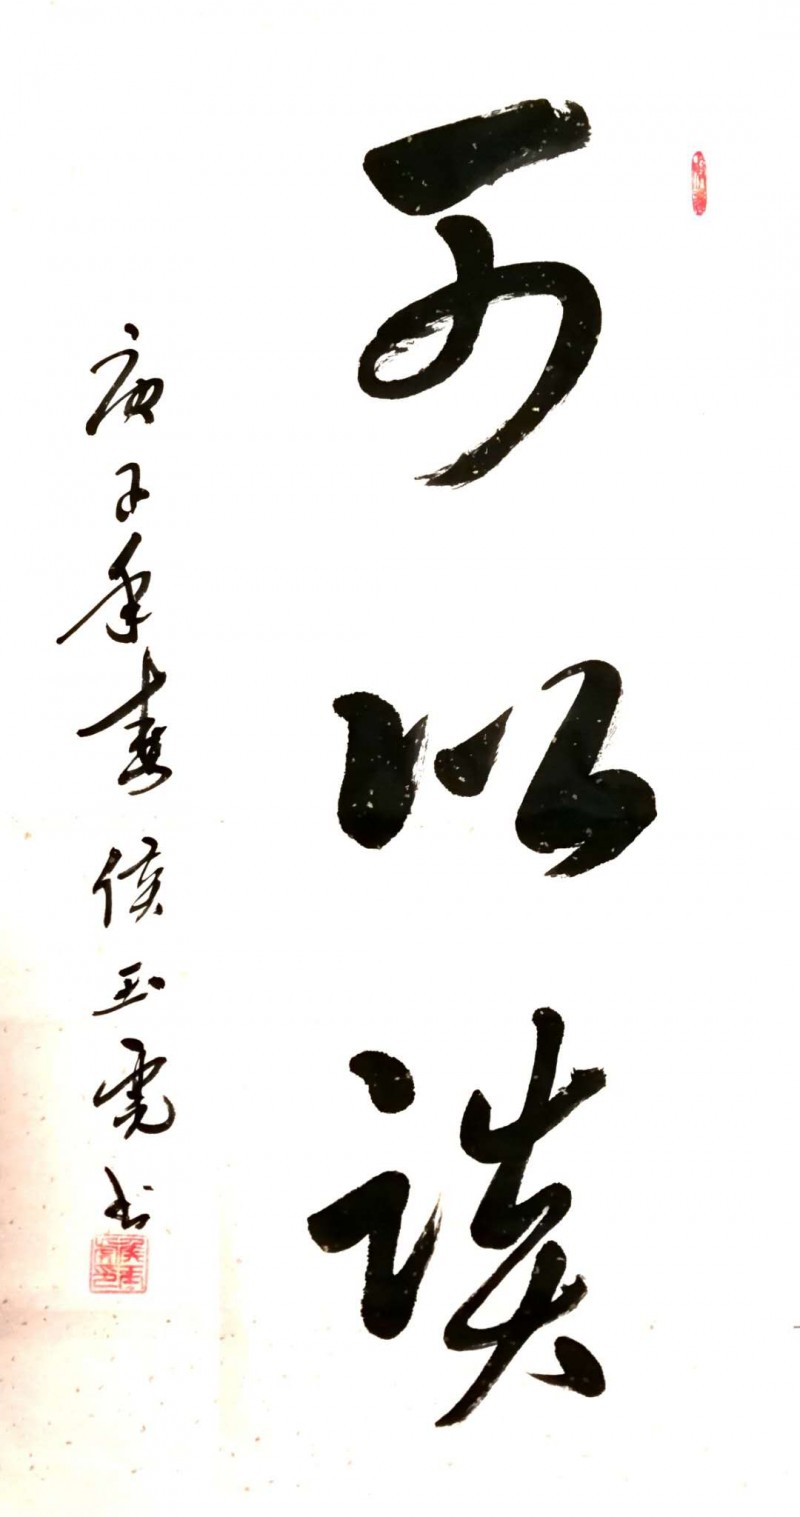 可以谈
庚子年春 侯玉 书